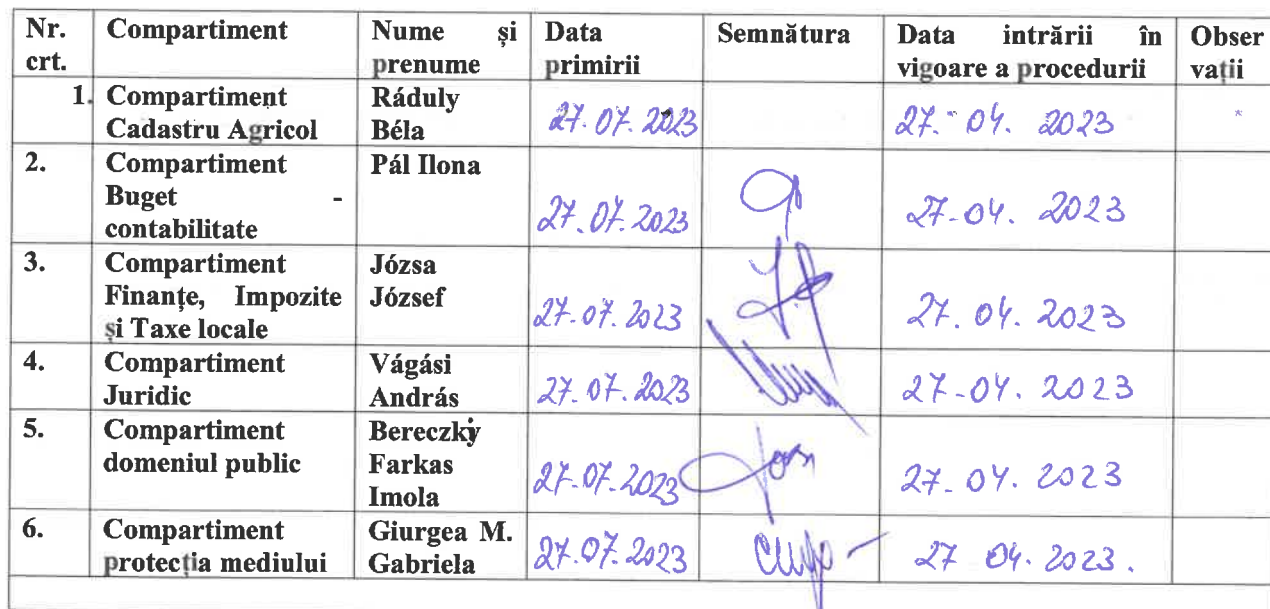 Nr. crt. Compartiment Nume și prenume Data primirii Semnătura Data intrării în vigoare a procedurii Observații
1. Compartiment Cadastru Agricol Ráduly Béla 27.07.2023 27. 04. 2023
2. Compartiment Buget - contabilitate Pál Ilona 27.07.2023 27-04. 2023
3. Compartiment Finanțe, Impozite și Taxe locale Józsa József 27-07.2023 27. 04. 2023
4. Compartiment Juridic Vágási András 27.07.2023 27-04. 2023
5. Compartiment domeniul public Bereczky Farkas Imola 27-07.2023 27-04. 2023
6. Compartiment protecția mediului Giurgea M. Gabriela 27.07.2023 27 04. 2023.